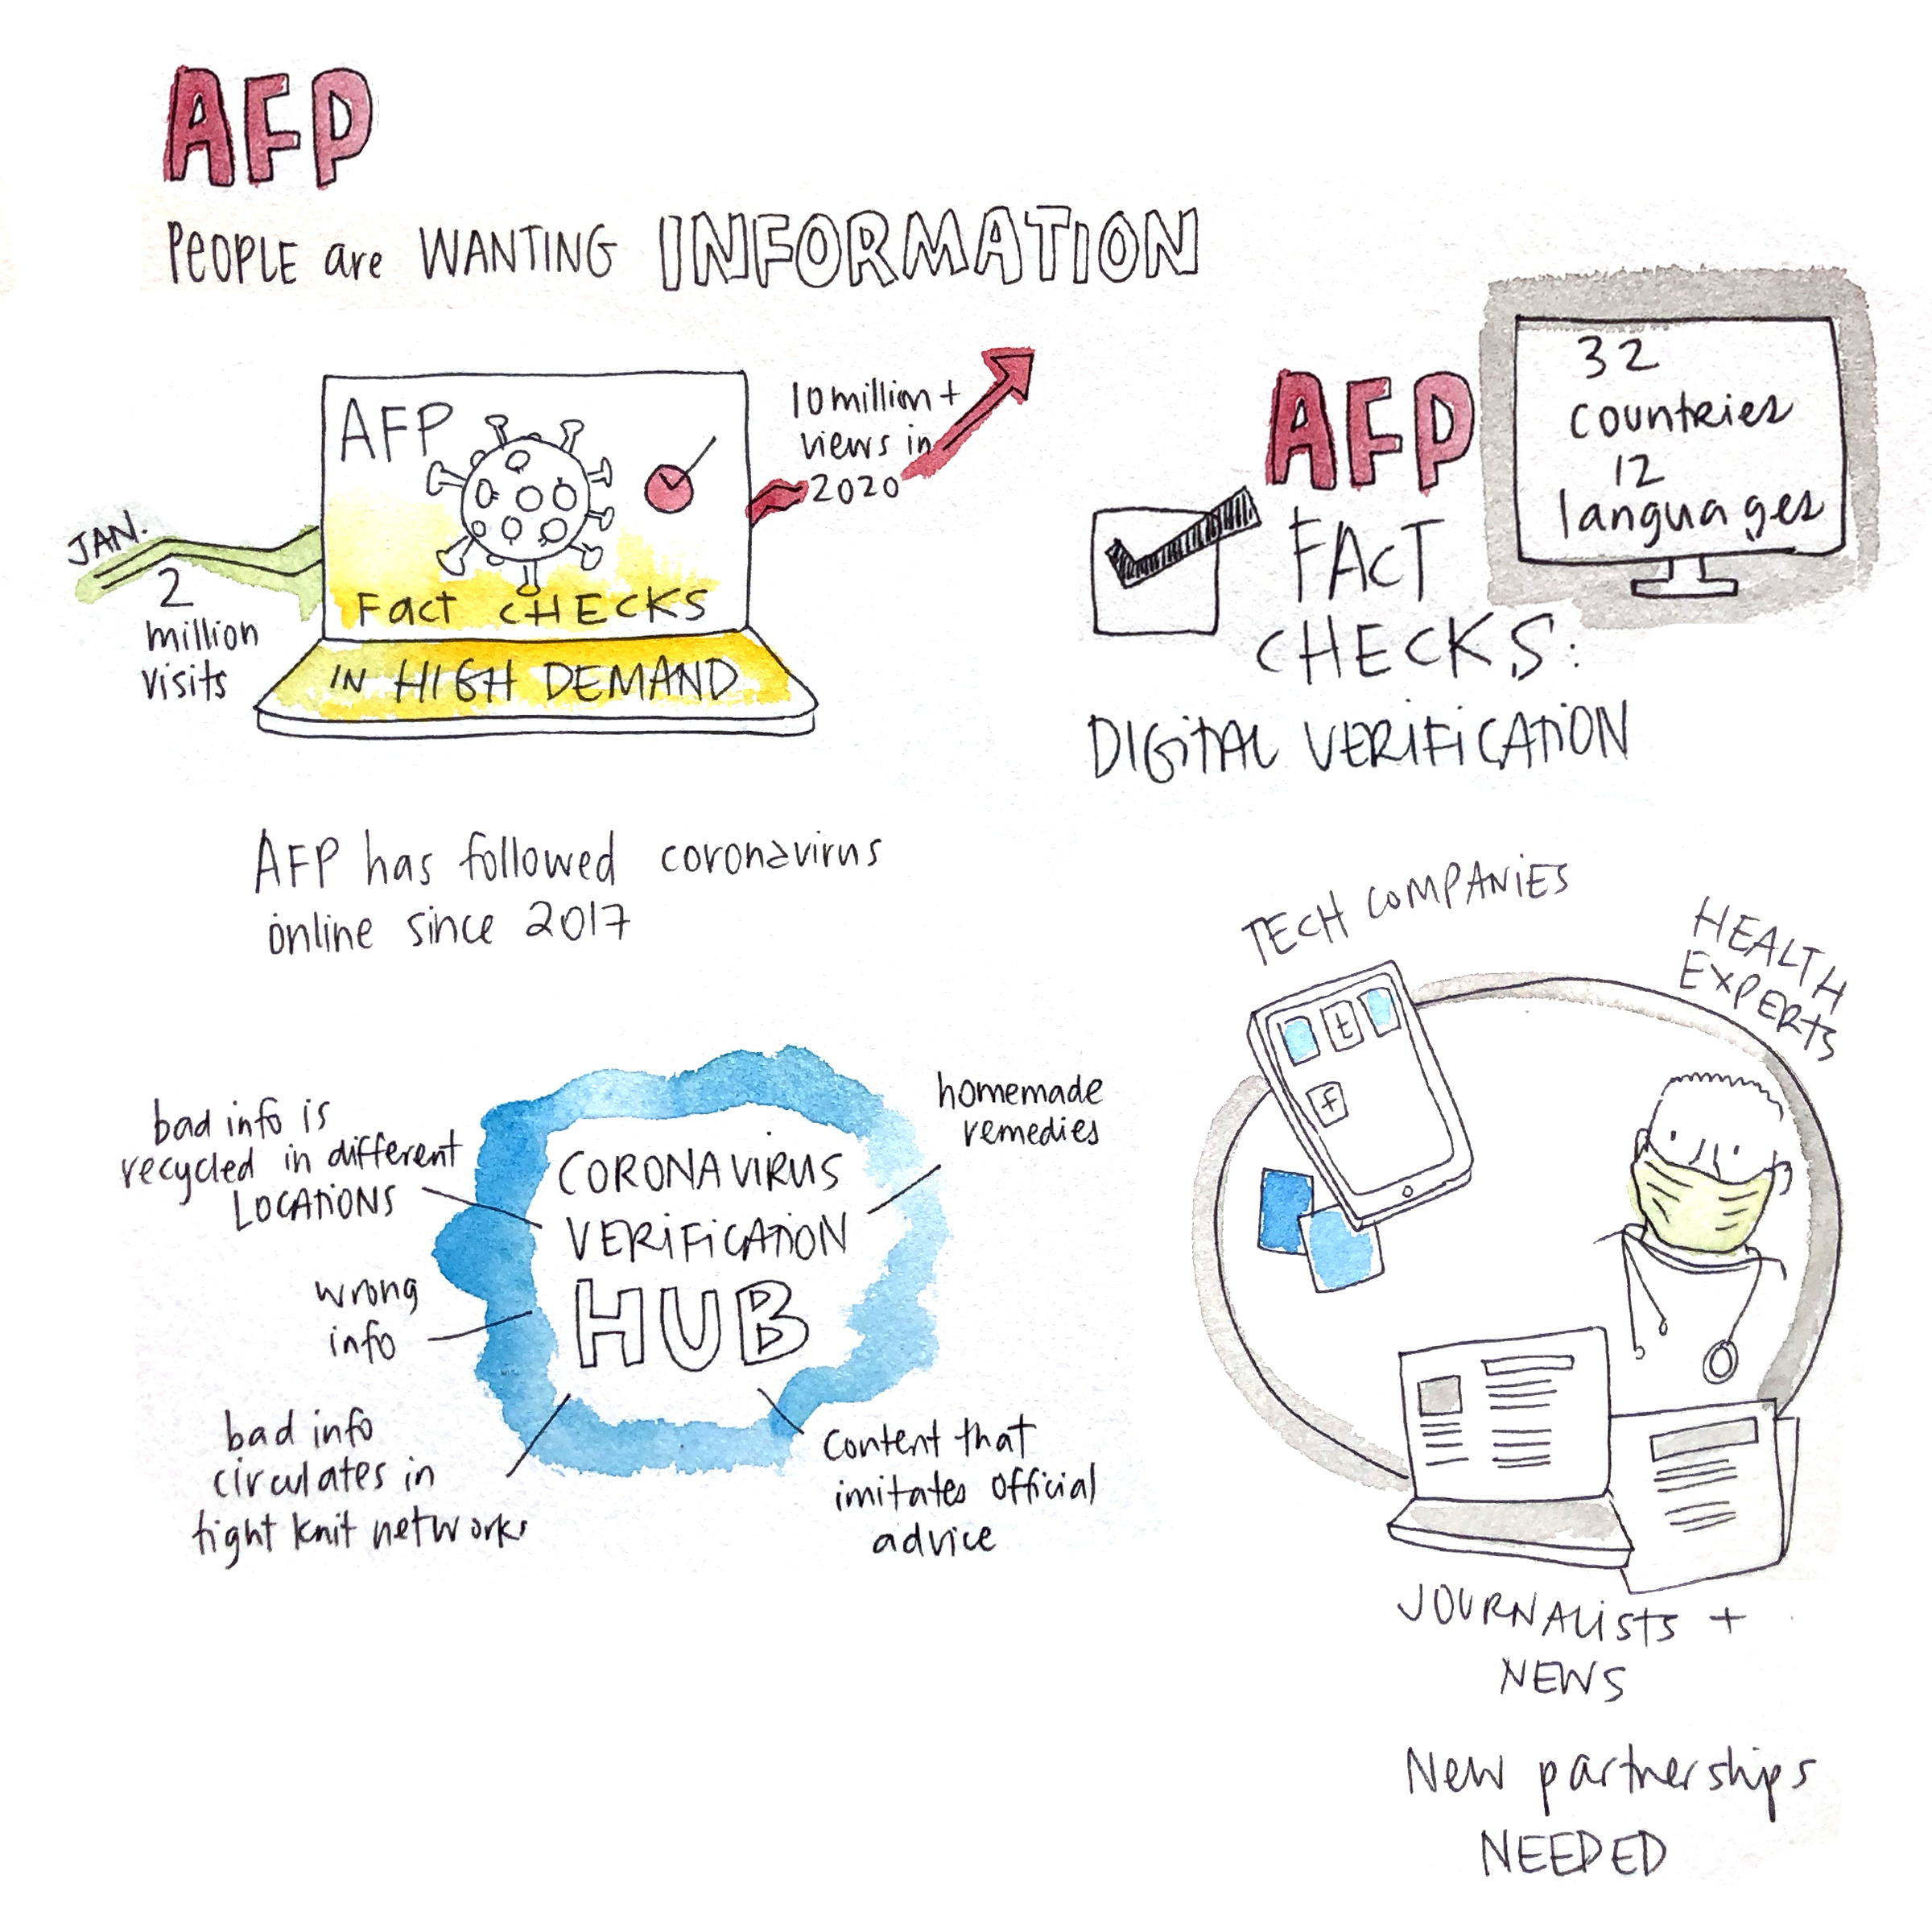 AFP
PEOPLE are WANTING INFORMATION
JAN.
2
million
visits
AFP
Fact CHECKS
IN HIGH DEMAND
10 million +
views in
2020
AFP
FACT
CHECKS:
DIGITAL VERIFICATION
32
countries
12
languages
AFP has followed coronavirus
online since 2017
CORONAVIRUS
VERIFICATION
HUB
bad info is
recycled in different
LOCATIONS
wrong
info
bad info
circulates in
tight knit networks
homemade
remedies
content that
imitates official
advice
TECH COMPANIES
HEALTH
EXPERTS
t
f
JOURNALISTS +
NEWS
New partnerships
NEEDED